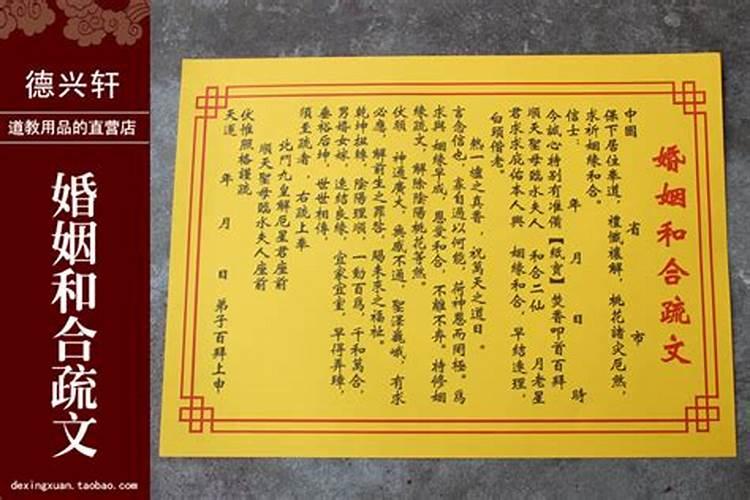 德兴轩
道教用品的直营店
婚姻和合疏文
dexingxuan.taobao.com
婚姻和合疏文
中國 省 市
保下居住奉道，禮懺禳解，桃花諸灾厄煞，
求祈姻緣和合。
信士： 年 月 日 時
今誠心特别有准備【紙寳】焚香叩首百拜
順天聖母臨水夫人 和合二仙 月老星
君求求庇佑本人與 姻緣和合，早結連理，
白頭偕老。
熱一爐之真香，祝萬天之道日。
言念信也，拿自過以何能，荷神恩而罔極。爲
求與 姻緣早成，恩愛和合，不離不弃。特修姻
緣疏文，解除陰陽桃花等煞。
伏願 神通廣大，無感不通，聖澤巍峨，有求
必應，解前生之罪咎，賜未來之福祉。
乾坤扭轉，陰陽理順，一動百爲，千和萬合，
男婚女嫁，速結良緣，宜家宜室，早得弄璋，
垂裕后坤，世世相傳，
須至疏者，右疏上奉
北門九皇解厄星君座前
順天聖母臨水夫人座前
伏惟照格謹疏
天運 年 月 日 弟子百拜上申